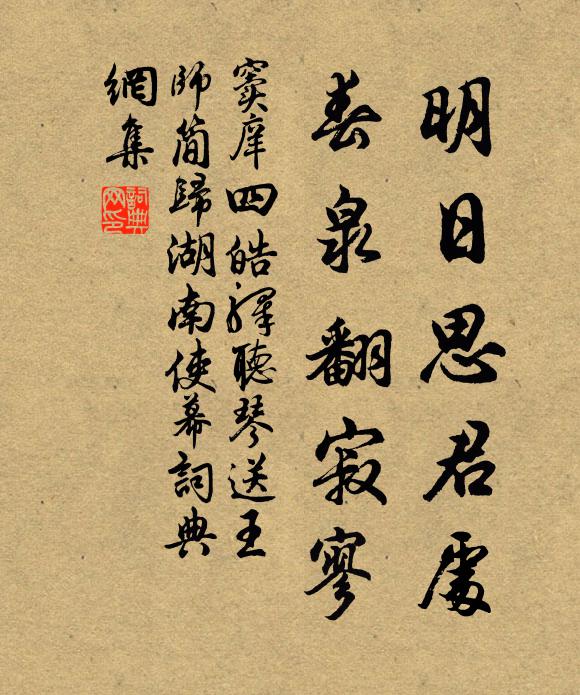 明日思君處
春泉翻寂寥
竇庠四皓驛聽琴送王
師簡歸湖南使幕詞典
網集
詞典网印